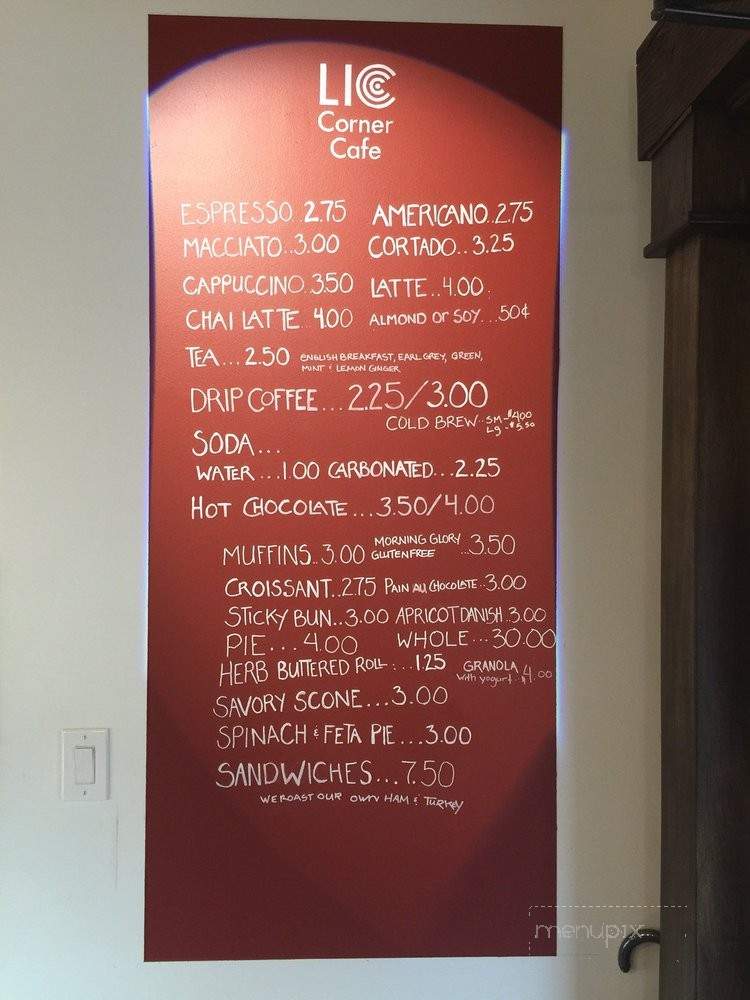 LIC
Corner
Cafe
ESPRESSO. 2.75 AMERICANO..2.75
MACCIATO..3.00 CORTADO..3.25
CAPPUCCINO.3.50 LATTE..4.00
CHAI LATTE. 4.00 ALMOND OR SOY...50¢
TEA...2.50 ENGLISH BREAKFAST, EARL GREY, GREEN,
MINT & LEMON GINGER
DRIP COFFEE...2.25/3.00
COLD BREW..SM-$4.00
Lg-$5.50
SODA...
WATER...1.00 CARBONATED...2.25
HOT CHOCOLATE...3.50/4.00
MUFFINS..3.00 MORNING GLORY
GLUTEN FREE ...3.50
CROISSANT..2.75 PAIN AU CHOCOLATE..3.00
STICKY BUN..3.00 APRICOT DANISH.3.00
PIE...4.00 WHOLE...30.00
HERB BUTTERED ROLL...1.25 GRANOLA
with yogurt..4.00
SAVORY SCONE...3.00
SPINACH & FETA PIE...3.00
SANDWICHES...7.50
WE ROAST OUR OWN HAM & TURKEY
menupix